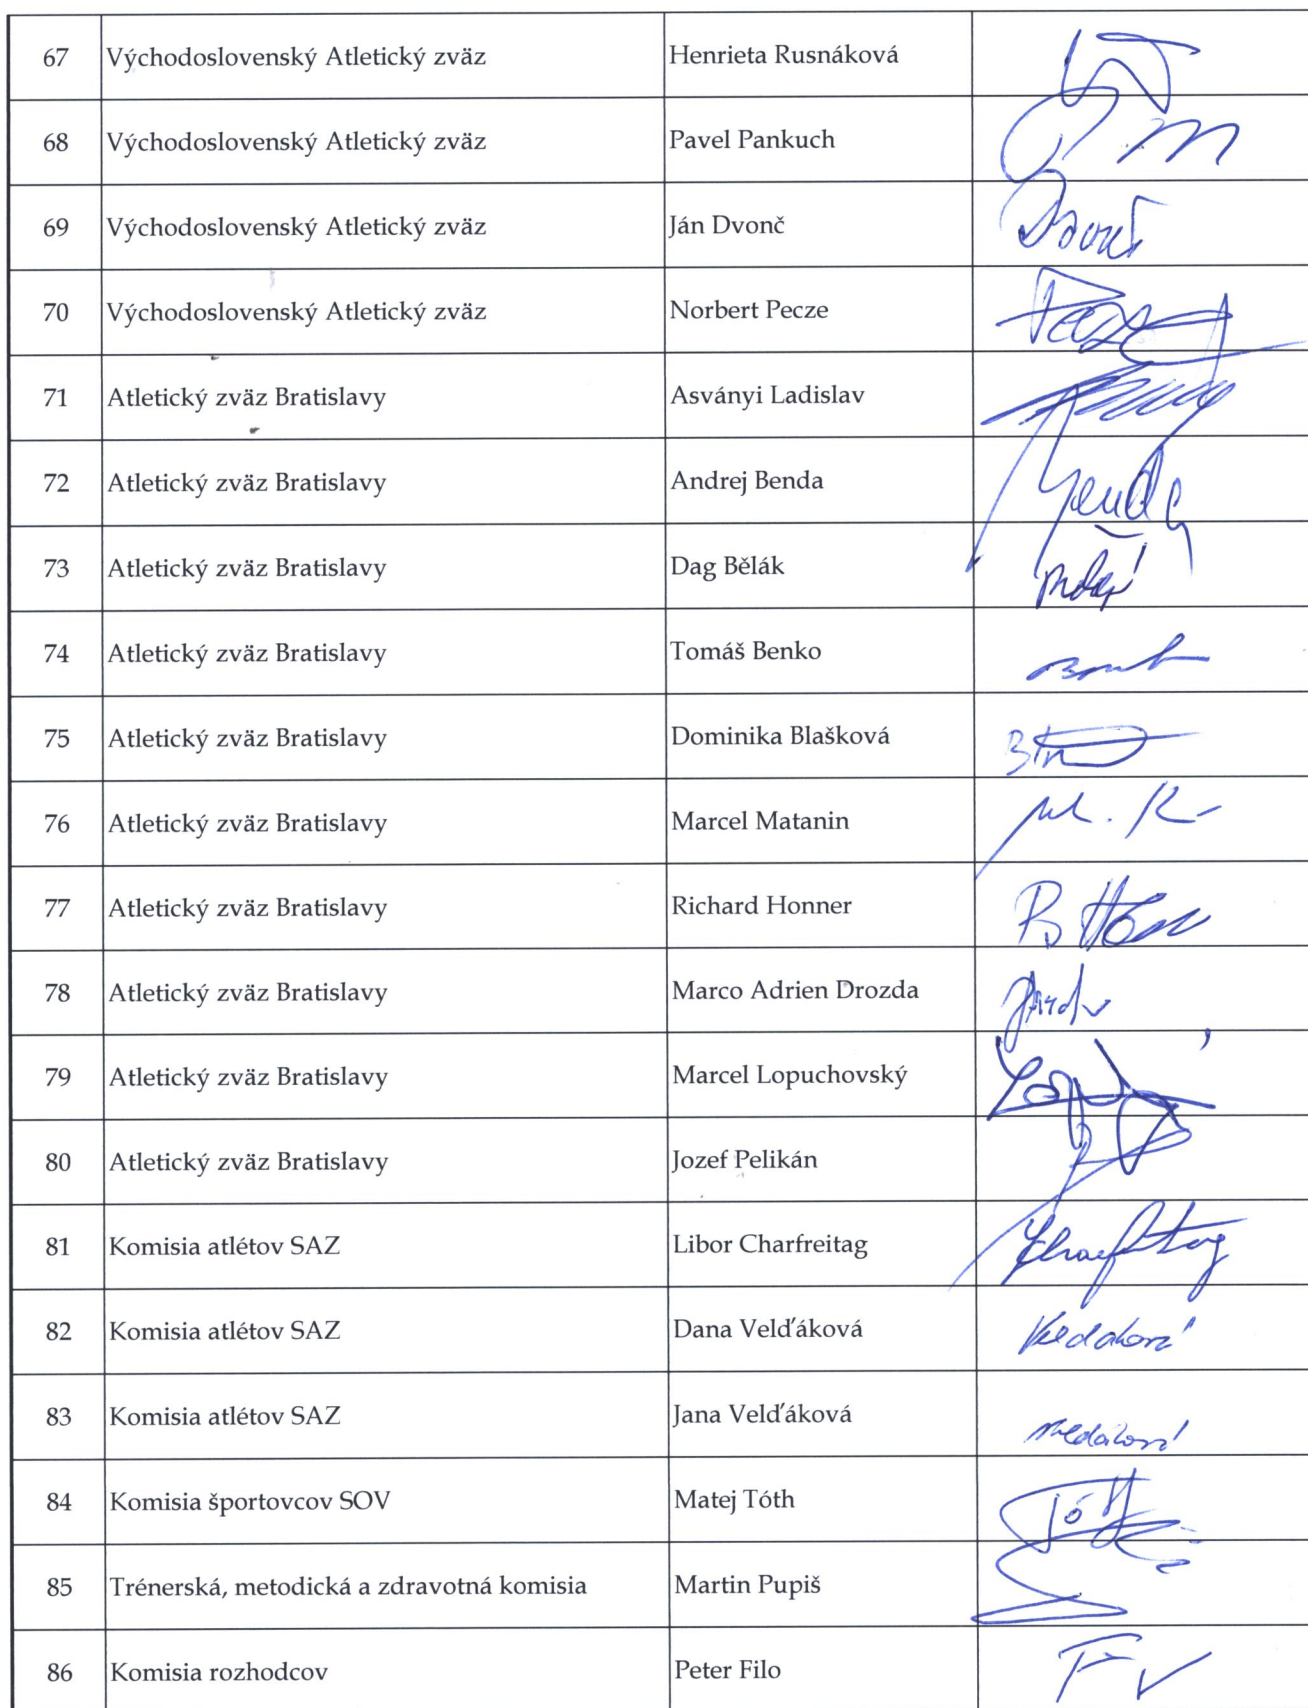 67 Východoslovenský Atletický zväz Henrieta Rusnáková
68 Východoslovenský Atletický zväz Pavel Pankuch
69 Východoslovenský Atletický zväz Ján Dvonč
70 Východoslovenský Atletický zväz Norbert Pecze
71 Atletický zväz Bratislavy Asványi Ladislav
72 Atletický zväz Bratislavy Andrej Benda
73 Atletický zväz Bratislavy Dag Bělák
74 Atletický zväz Bratislavy Tomáš Benko
75 Atletický zväz Bratislavy Dominika Blašková
76 Atletický zväz Bratislavy Marcel Matanin
77 Atletický zväz Bratislavy Richard Honner
78 Atletický zväz Bratislavy Marco Adrien Drozda
79 Atletický zväz Bratislavy Marcel Lopuchovský
80 Atletický zväz Bratislavy Jozef Pelikán
81 Komisia atlétov SAZ Libor Charfreitag
82 Komisia atlétov SAZ Dana Velďáková
83 Komisia atlétov SAZ Jana Velďáková
84 Komisia športovcov SOV Matej Tóth
85 Trénerská, metodická a zdravotná komisia Martin Pupiš
86 Komisia rozhodcov Peter Filo